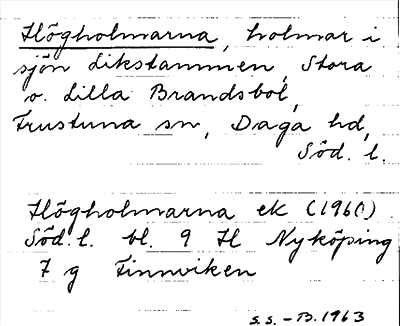 Högholmarna, holmar i
sjön Likstammen, Stora
o. Lilla Brandsbol,
Frustuna sn, Daga hd,
Söd. l.
Högholmarna ek (1960)
Söd. l. bl. 9 H Nyköping
7 g Finnviken
S.S. - B. 1963